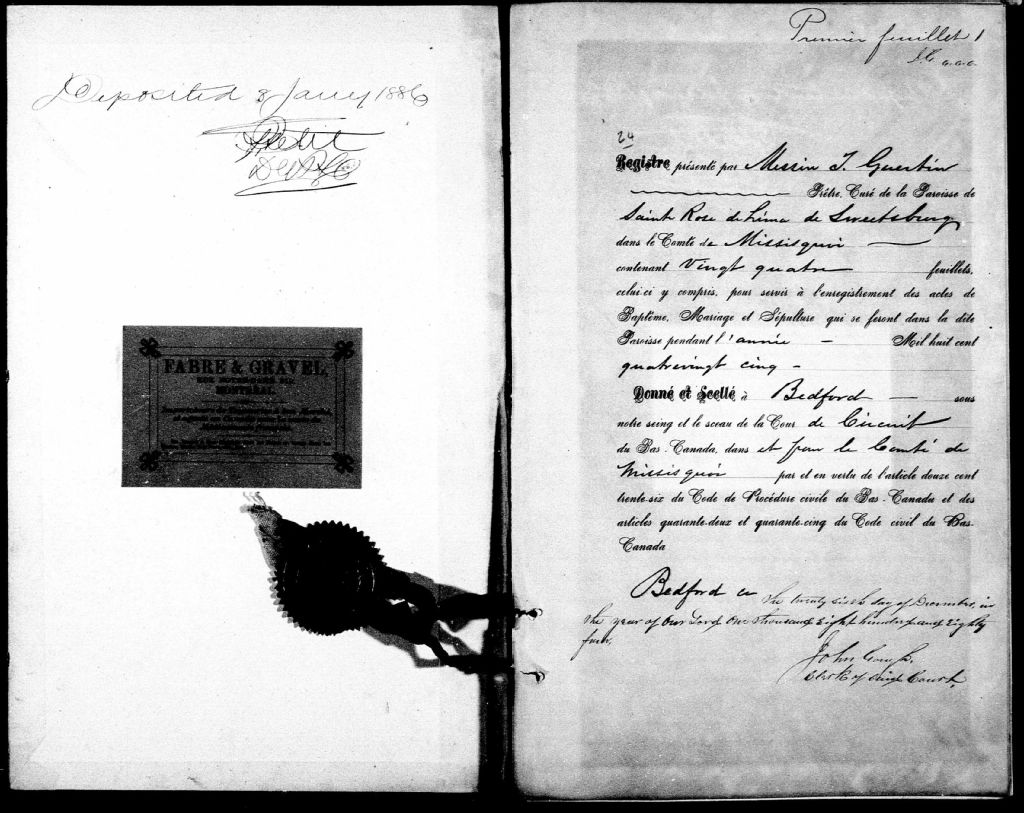 Deposited 8 Jany 1886
FABRE & GRAVEL,
MONTRÉAL
Premier feuillet 1
24
Registre présenté par Messire J. Guertin
Prêtre, Curé de la Paroisse de
Sainte Rose de Lima de Sweetsburg
dans le Comté de Missisquoi
contenant Vingt quatre feuillets,
celui-ci y compris, pour servir à l'enregistrement des actes de
Baptême, Mariage et Sépulture qui se feront dans la dite
Paroisse pendant l'année - Mil huit cent
quatrevingt cinq -
Donné et Scellé à Bedford sous
notre seing et le sceau de la Cour de Circuit
du Bas-Canada, dans et pour le Comté de
Missisquoi par et en vertu de l'article douze cent
trente-six du Code de Procédure civile du Bas-Canada et des
articles quarante-deux et quarante-cinq du Code civil du Bas-
Canada
Bedford the twenty sixth day of December, in
the year of Our Lord One thousand Eight hundred and Eighty
four.
John
Clerk of Court.